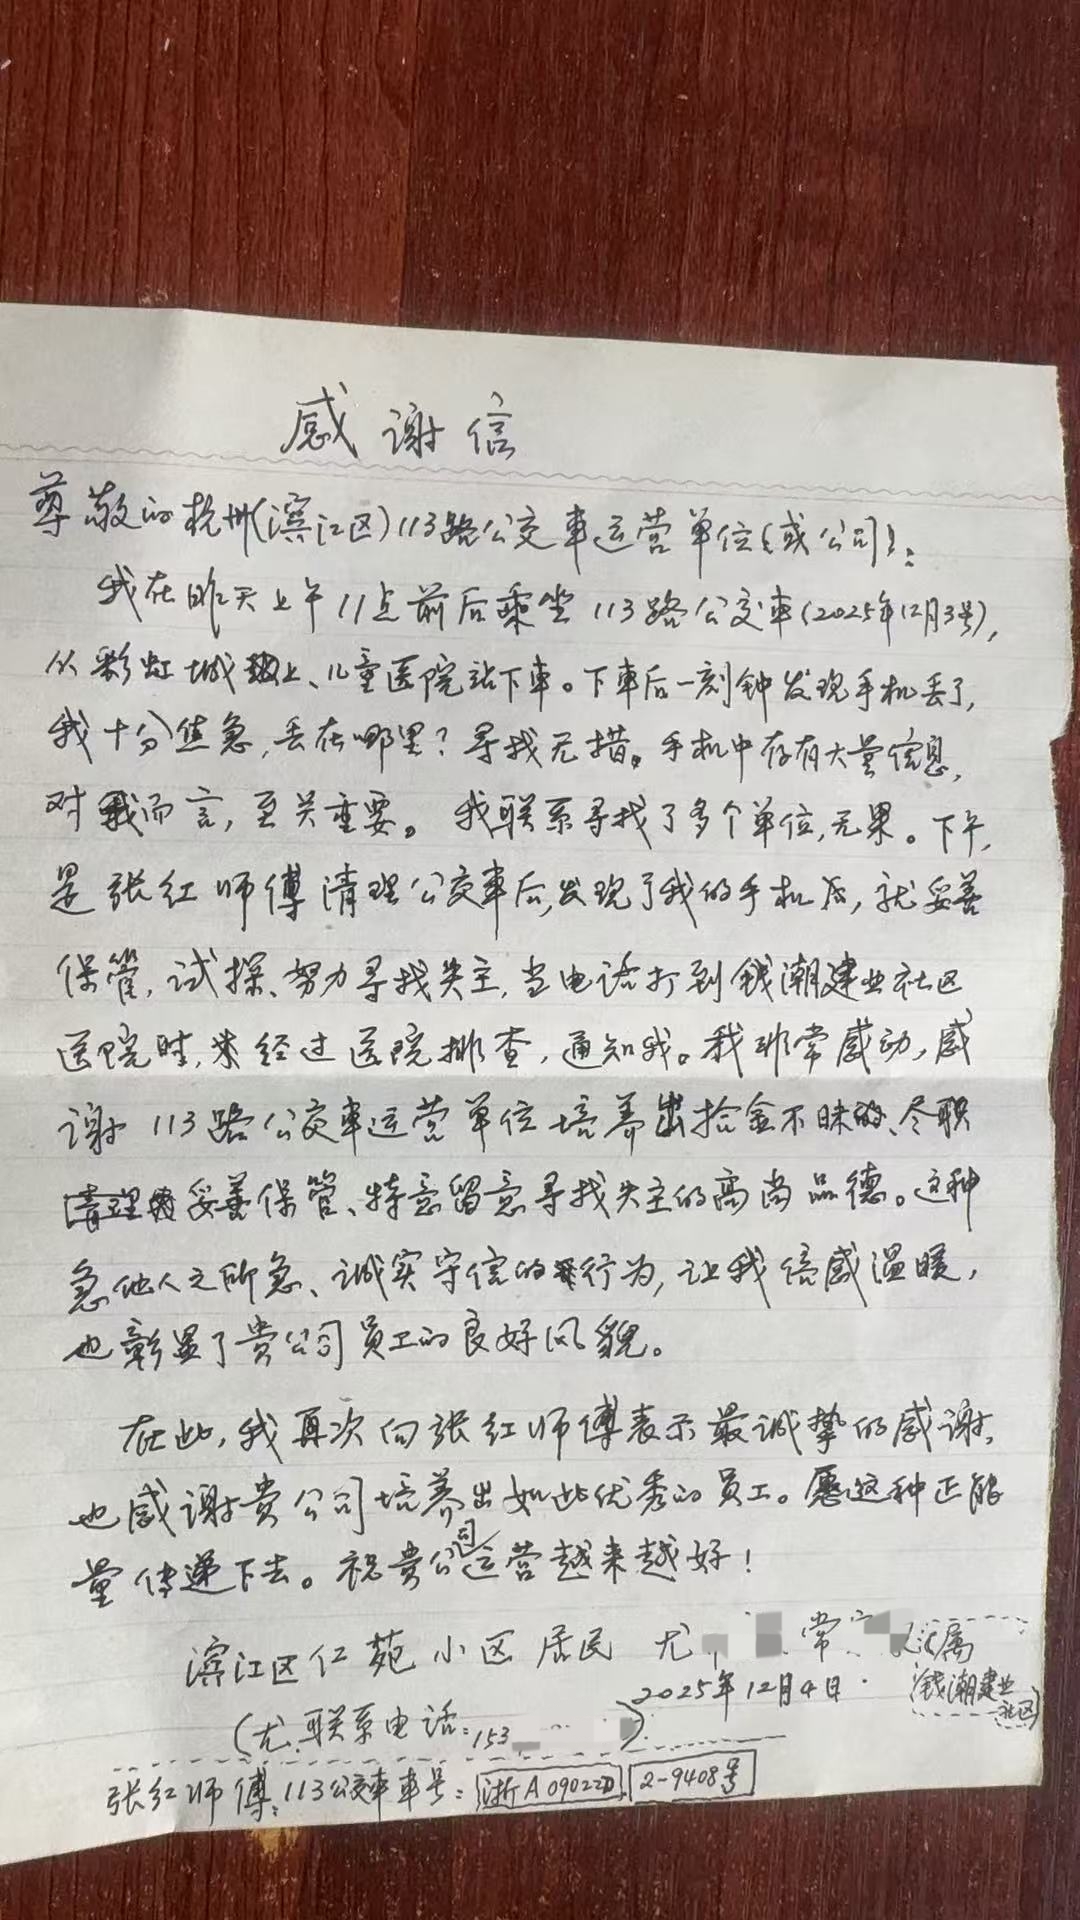 感谢信
尊敬的杭州(滨江区)113路公交车运营单位(或公司):
我在昨天上午11点前后乘坐113路公交车(2025年12月3号),
从彩虹城上、儿童医院站下车。下车后一刻钟发现手机丢了,
我十分焦急,丢在哪里?寻找无措。手机中存有大量信息,
对我而言,至关重要。我联系寻找了多个单位,无果。下午,
是张红师傅清理公交车后,发现了我的手机后,就妥善
保管,试探、努力寻找失主,当电话打到钱潮建业社区
医院时,经过医院排查,通知我。我非常感动,感
谢113路公交车运营单位培养出拾金不昧、尽职
清理妥善保管、特意留意寻找失主的高尚品德。这种
急他人之所急、诚实守信的行为,让我倍感温暖,
也彰显了贵公司员工的良好风貌。
在此,我再次向张红师傅表示最诚挚的感谢,
也感谢贵公司培养出如此优秀的员工。愿这种正能
量传递下去。祝贵公司运营越来越好!
滨江区仁苑小区居民 尤 常 属
2025年12月4日. (钱潮建业
社区)
(尤.联系电话:153 )
张红师傅:113公交车车号:浙A09022D 2-9408号